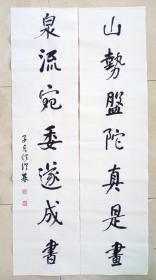 山勢盤陀真是畫
泉流宛委遂成書